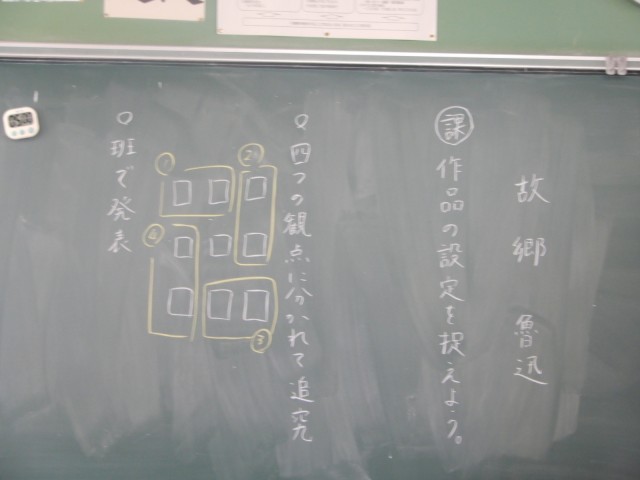 故郷 魯迅
課 作品の設定を捉えよう。
○四つの観点に分かれて追究
①
②
③
④
○班で発表
05:00